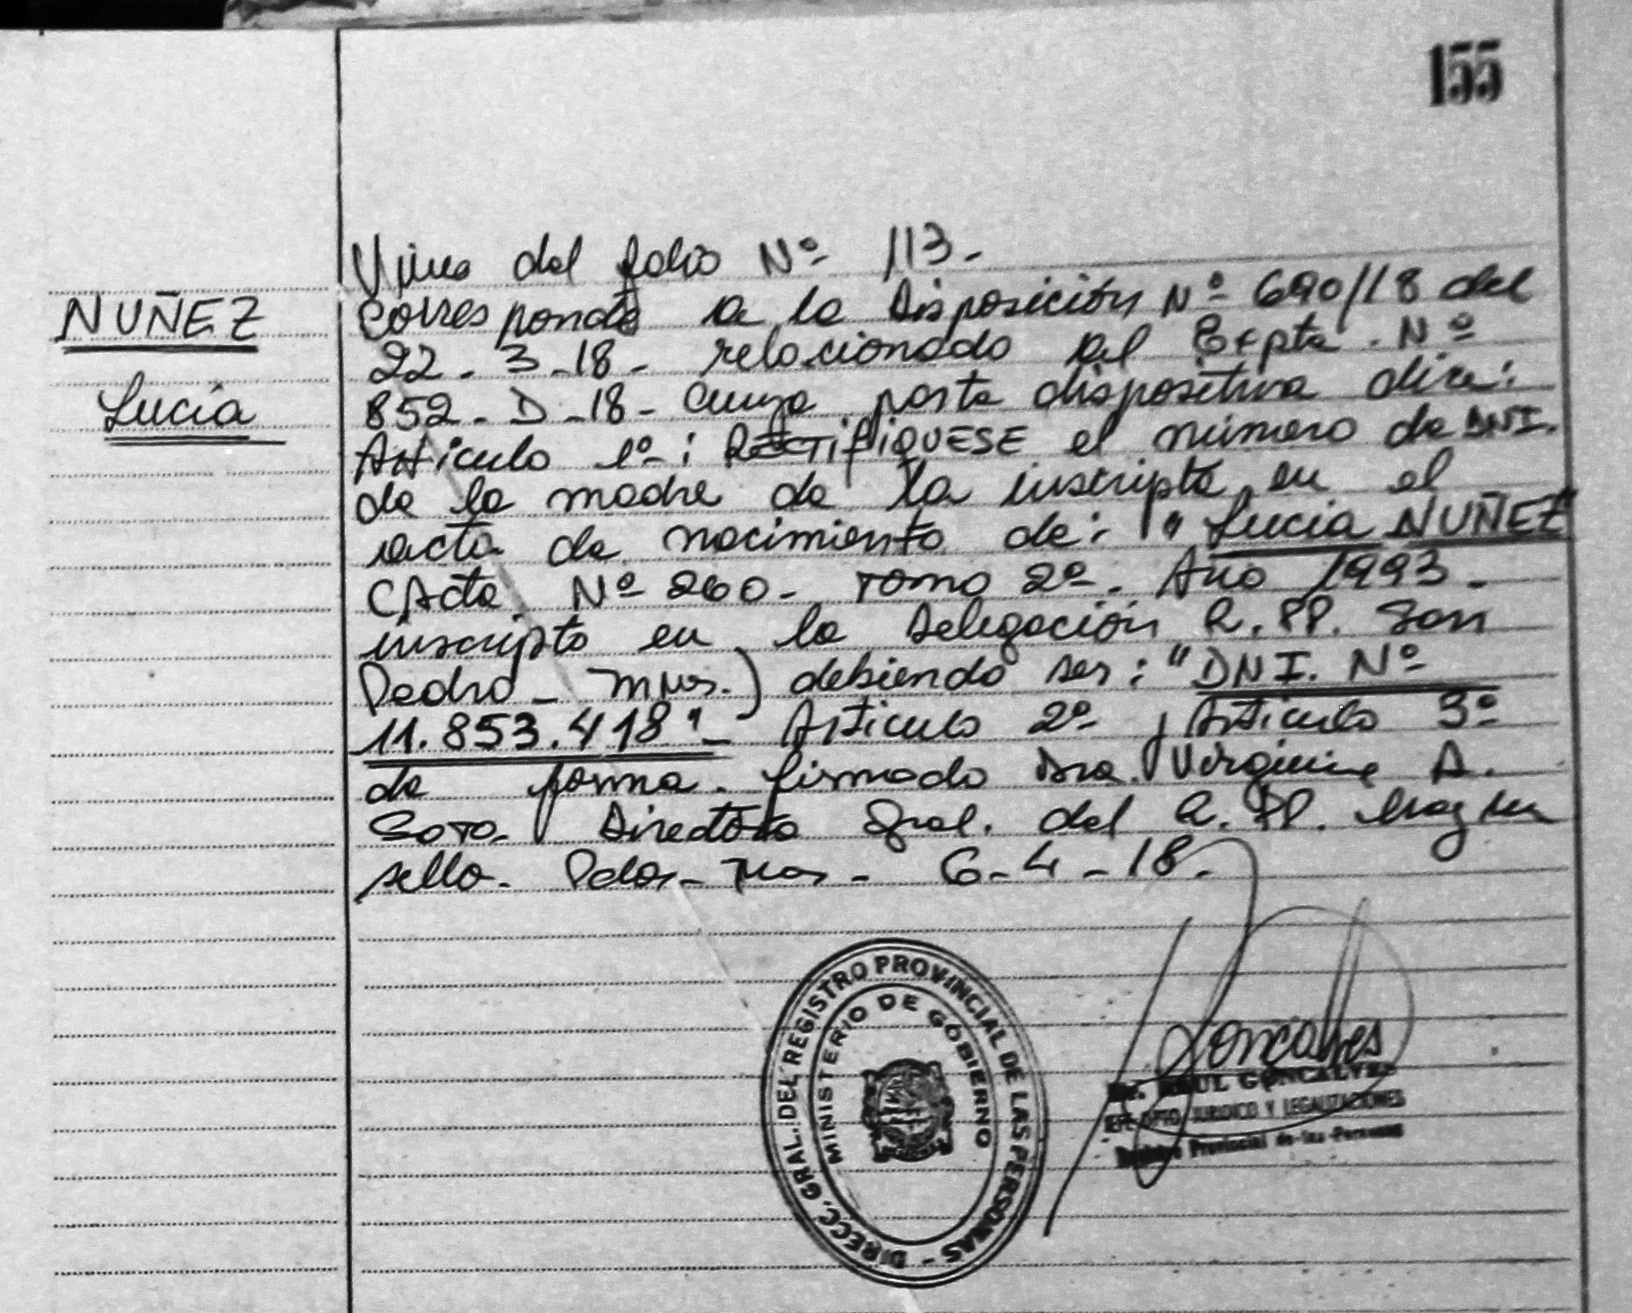 155
NUÑEZ
Lucía
Viene del folio Nº 113.-
Corresponde a la Disposición Nº 690/18 del
22-3-18- relacionado al Expte. Nº
852-D-18- cuya parte dispositiva dice:
Artículo 1º-: RECTIFIQUESE el número de DNI.
de la madre de la inscripta en el
acta de nacimiento de: "Lucía NUÑEZ
(Acta Nº 260- Tomo 2º- Año 1993-
inscripto en la Delegación R.PP. San
Pedro- Mnes.) debiendo ser: "DNI. Nº
11.853.418"- Artículo 2º y Artículo 3º
de forma. firmado Dra. Virginia A.
Soto- Directora Gral. del R.PP. Hay un
sello. Pdas-Mnes- 6-4-18-
DIRECC. GRAL. DEL REGISTRO PROVINCIAL DE LAS PERSONAS -
MINISTERIO DE GOBIERNO
Goncalves
RAUL GONCALVES
JEFE DPTO. JURIDICO Y LEGALIZACIONES
Registro Provincial de las Personas